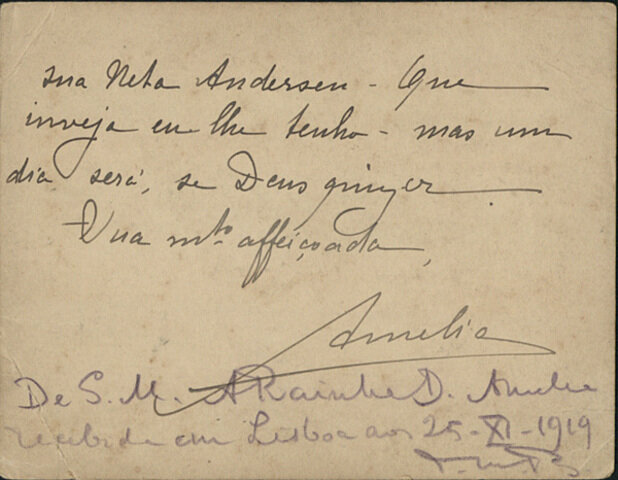 sua Neta Andersen - Que
inveja eu lhe tenho - mas um
dia será, se Deus quizer
Sua mto. affeiçoada,
Amelia
De S. M. A Rainha D. Amelia
recebida em Lisboa aos 25-XI-1919